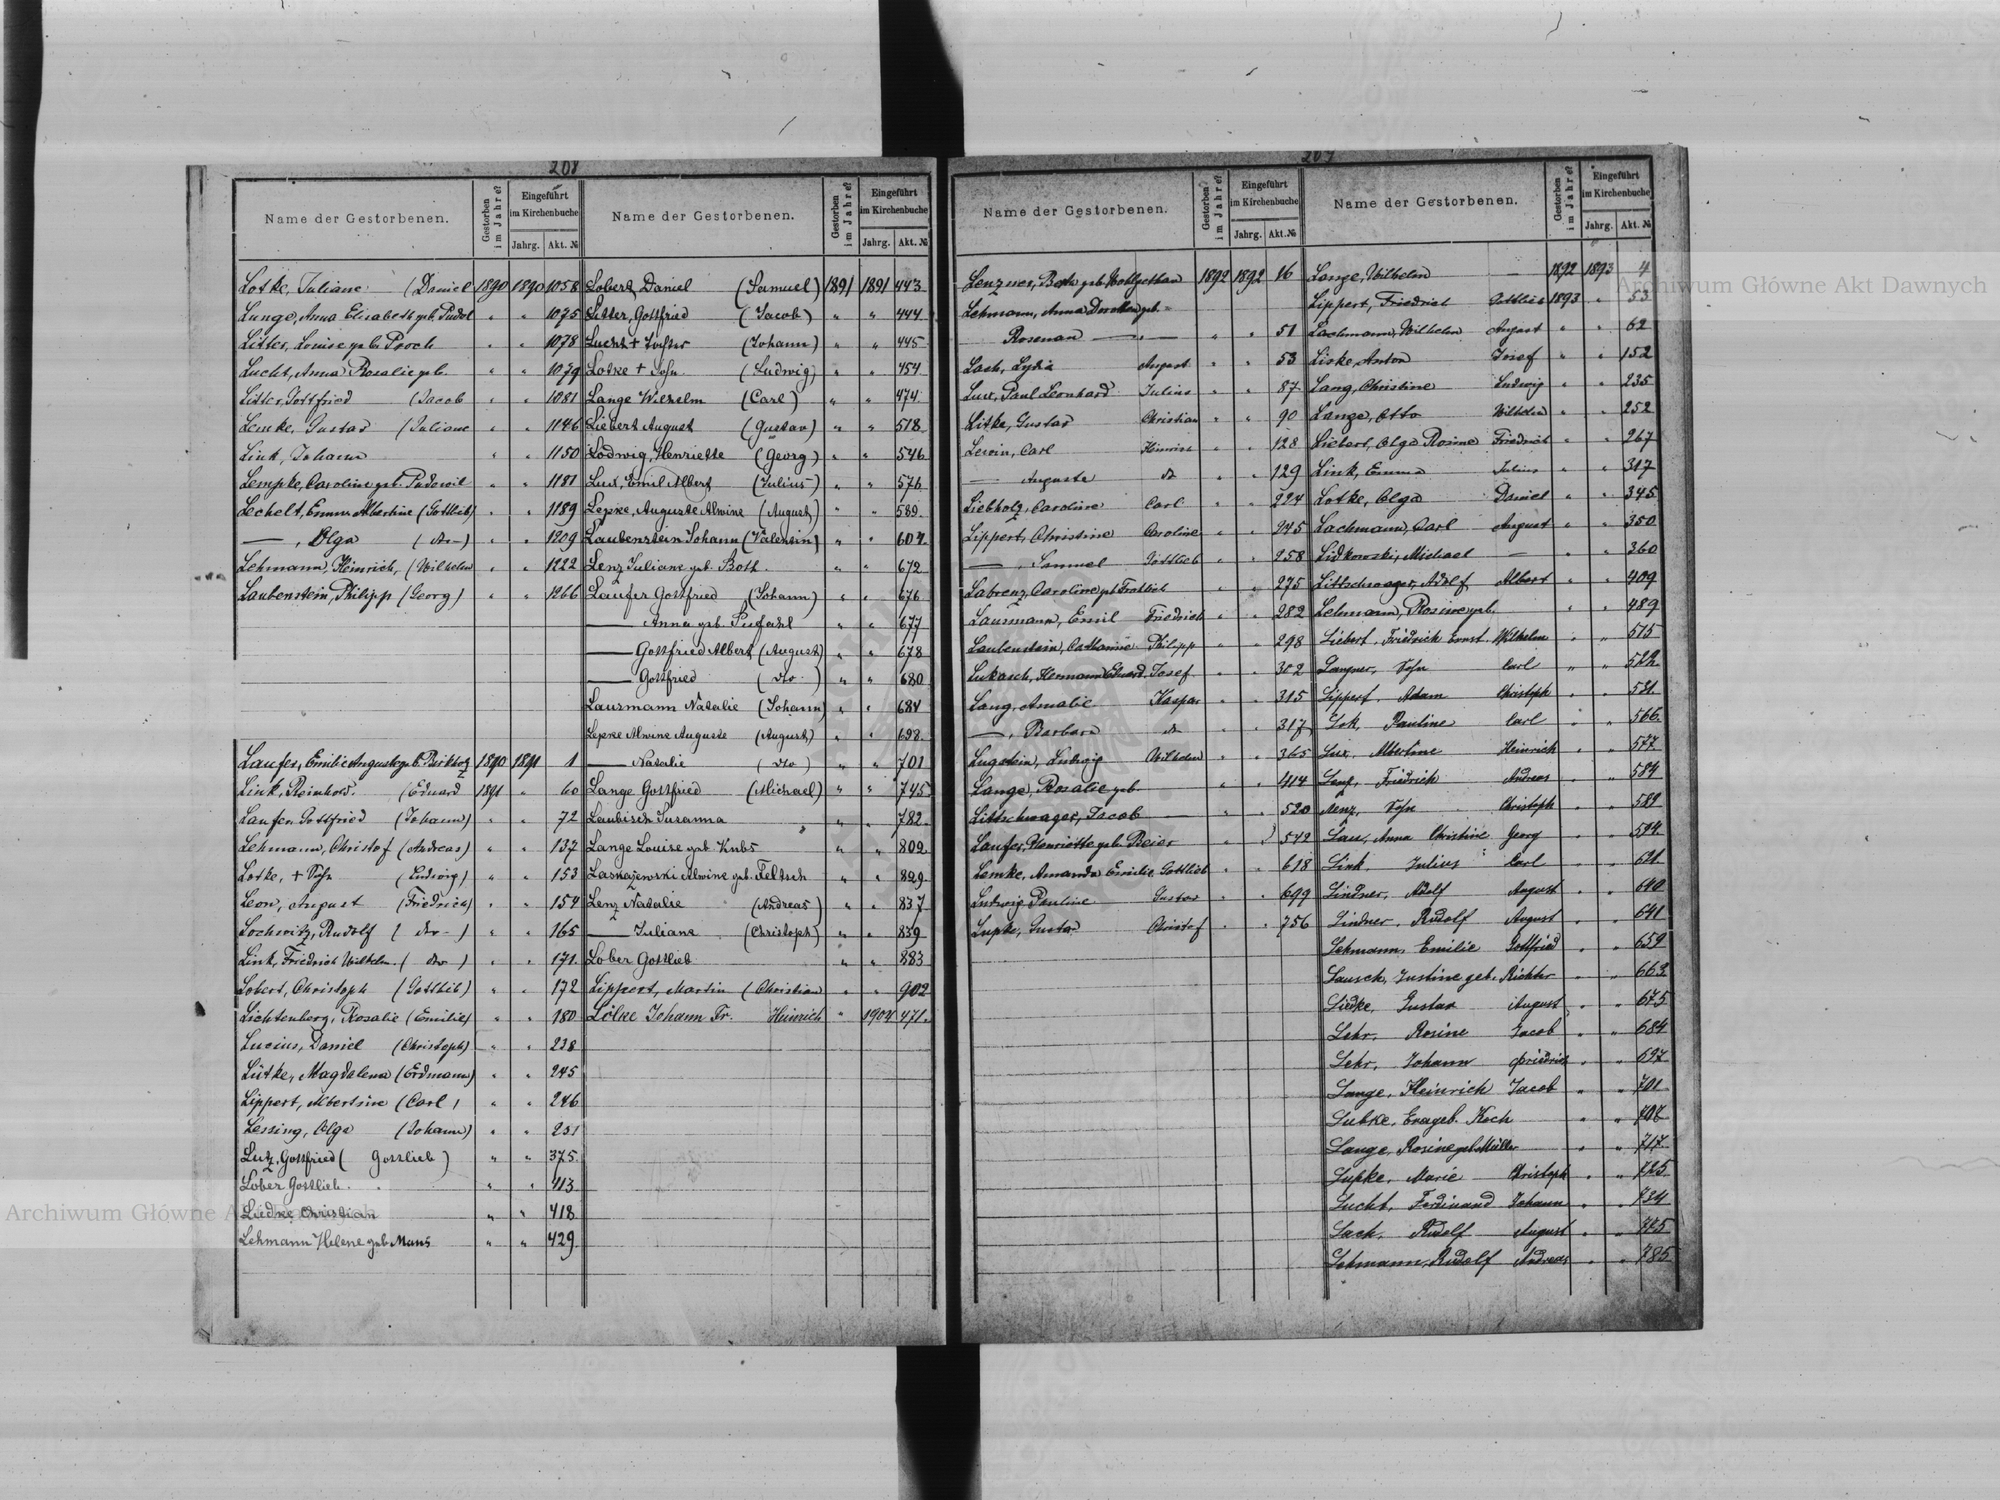 208
Name der Gestorbenen.
Gestorben im Jahre?
Eingeführt im Kirchenbuche
Jahrg. Akt. №
Lotke, Juliane (Daniel 1890 1890 1058
Lange, Anna Elisabeth geb. " " 1075
Litter, Louise geb. " " 1078
Lucht, Anna Rosalie geb. " " 1079
Litter, Gottfried (Jacob " " 1081
Lemke, Gustav (Juliane " " 1146
Link, Johann " " 1150
Lempke, Caroline geb. " " 1181
Lechelt, Emma Albertine (Gottlieb) " " 1189
—, Olga (do—) " " 1209
Lehmann, Heinrich, (Wilhelm " " 1222
Laubenstein, Philipp (Georg) " " 1266
Laufer, Emilie Auguste geb. Birkholz 1890 1891 1
Link, Reinhold. (Eduard 1891 " 60
Laufer, Gottfried (Johann) " " 72
Lehmann, Christof (Andreas) " " 137
Lotke, + Sohn (Ludwig) " " 153
Leon, August (Friedrich) " " 154
Lochwitz, Rudolf ( do—) " " 165
Link, Friedrich Wilhelm. ( do ) " " 171.
Lobert, Christoph (Gottlieb) " " 172
Lichtenberg, Rosalie (Emilie) " " 180
Lucius, Daniel (Christoph) " " 238
Lütke, Magdalena (Erdmann) " " 245
Lippert, Albertine (Carl) " " 246
Lessing, Olga (Johann) " " 251
Lutz, Gottfried ( Gottlieb ) " " 375
Lober Gottlieb. " " 413
Liedke Christian " " 418
Lehmann Helene geb. Maus " " 429
Name der Gestorbenen.
Gestorben im Jahre?
Eingeführt im Kirchenbuche
Jahrg. Akt. №
Lobert, Daniel (Samuel) 1891 1891 443
Litter, Gottfried (Jacob) " " 444
Lucht + Tochter (Johann) " " 445
Lotke + Sohn (Ludwig) " " 454
Lange Wilhelm (Carl) " " 474
Liebert August (Gustav) " " 518
Lodwig, Henriette (Georg) " " 546
Lux, Emil Albert (Julius) " " 576
Lepke, Auguste Alwine (August) " " 589
Laubenstein Johann (Valentin) " " 607
Lenz Juliane geb. Both. " " 672
Laufer Gottfried (Johann) " " 676
— Anna geb. " " 677
— Gottfried Albert (August) " " 678
— Gottfried (do ) " " 680
Lausmann Natalie (Johann) " " 684
Lepke Alwine Auguste (August) " " 698
— Natalie (do) " " 701
Lange Gottfried (Michael) " " 745
Laubisch Susanna " " 782
Lange Louise geb. Kubs " " 802
Laskajewski Alwine geb. Feltsch " " 829
Lenz Natalie (Andreas) " " 837
— Juliane (Christoph) " " 859
Lober Gottlieb " " 883
Lippert, Martin (Christian " " 902
Lölke Johann Fr. Heinrich " 1904 471.
207
Name der Gestorbenen.
Gestorben im Jahre?
Eingeführt im Kirchenbuche
Jahrg. Akt. №
Lenzner, geb. 1892 1892 26
Lehmann, Anna Dorothea geb.
Rosenau — " — " " 51
Lach, Lydia August " " 53
Lux, Paul Leonhard Julius " " 87
Litke, Gustav Christian " " 90
Lewin, Carl Heinrich " " 128
— Auguste do " " 129
Liebholz, Caroline Carl " " 224
Lippert, Christine Caroline " " 245
—, Samuel Gottlieb " " 258
Labrenz, Caroline geb. " " 275
Lausmann, Emil Friedrich " " 282
Laubenstein, Catharine Philipp " " 298
Lukasch, Hermann Eduard Josef " " 302
Lang, Amalie Kaspar " " 315
—, Barbara do " " 317
Lugstein, Ludwig Wilhelm " " 365
Lange, Rosalie geb. " " 414
Littschwager, Jacob — " " 520
Laufer, Henriette geb. Beier " 542
Lemke, Amanda Emilie Gottlieb " " 618
Ludwig Pauline Gustav " " 699
Lupke, Gustav Christof " " 756
Name der Gestorbenen.
Gestorben im Jahre?
Eingeführt im Kirchenbuche
Jahrg. Akt. №
Lange, Wilhelm — 1892 1893 4
Lippert, Friedrich Gottlieb 1893 " 53
Lachmann, Wilhelm August " " 62
Liske, Anton Josef " " 152
Lang, Christine Ludwig " " 235
Lange, Otto Wilhelm " " 252
Liebert, Olga Rosine Friedrich " " 267
Link, Emma Julius " " 317
Lotke, Olga Daniel " " 345
Lachmann, Carl August " " 350
Lidkowski, Michael — " " 360
Littschwager, Adolf Albert " " 409
Lehmann, Rosine geb. " " 489
Liebert, Friedrich Ernst Wilhelm " " 515
Langner, Sohn Carl " " 522
Lippert, Adam Christoph " " 531
Lok, Pauline Carl " " 566
Lux, Albertine Heinrich " " 577
Lenz, Friedrich Andreas " " 584
Lenz, Sohn Christoph " " 589
Lau, Anna Christine Georg " " 594
Link Julius Carl " " 621
Lindner, Adolf August " " 640
Lindner, Rudolf August " " 641
Lehmann, Emilie Gottfried " " 659
Lausch, Justine geb. Richter " " 663
Liedke, Gustav August " " 675
Lehr, Rosine Jacob " " 684
Lehr, Johann Friedrich " " 697
Lange, Heinrich Jacob " " 701
Lubke, Eva geb. Koch " " 707
Lange, Rosine geb. Müller " " 717
Lupke, Marie Christoph " " 725
Lucht, Ferdinand Johann " " 734
Lack, Rudolf August " " 775
Lehmann, Rudolf Andreas " " 785
Archiwum Główne Akt Dawnych
Archiwum Główne Akt Dawnych